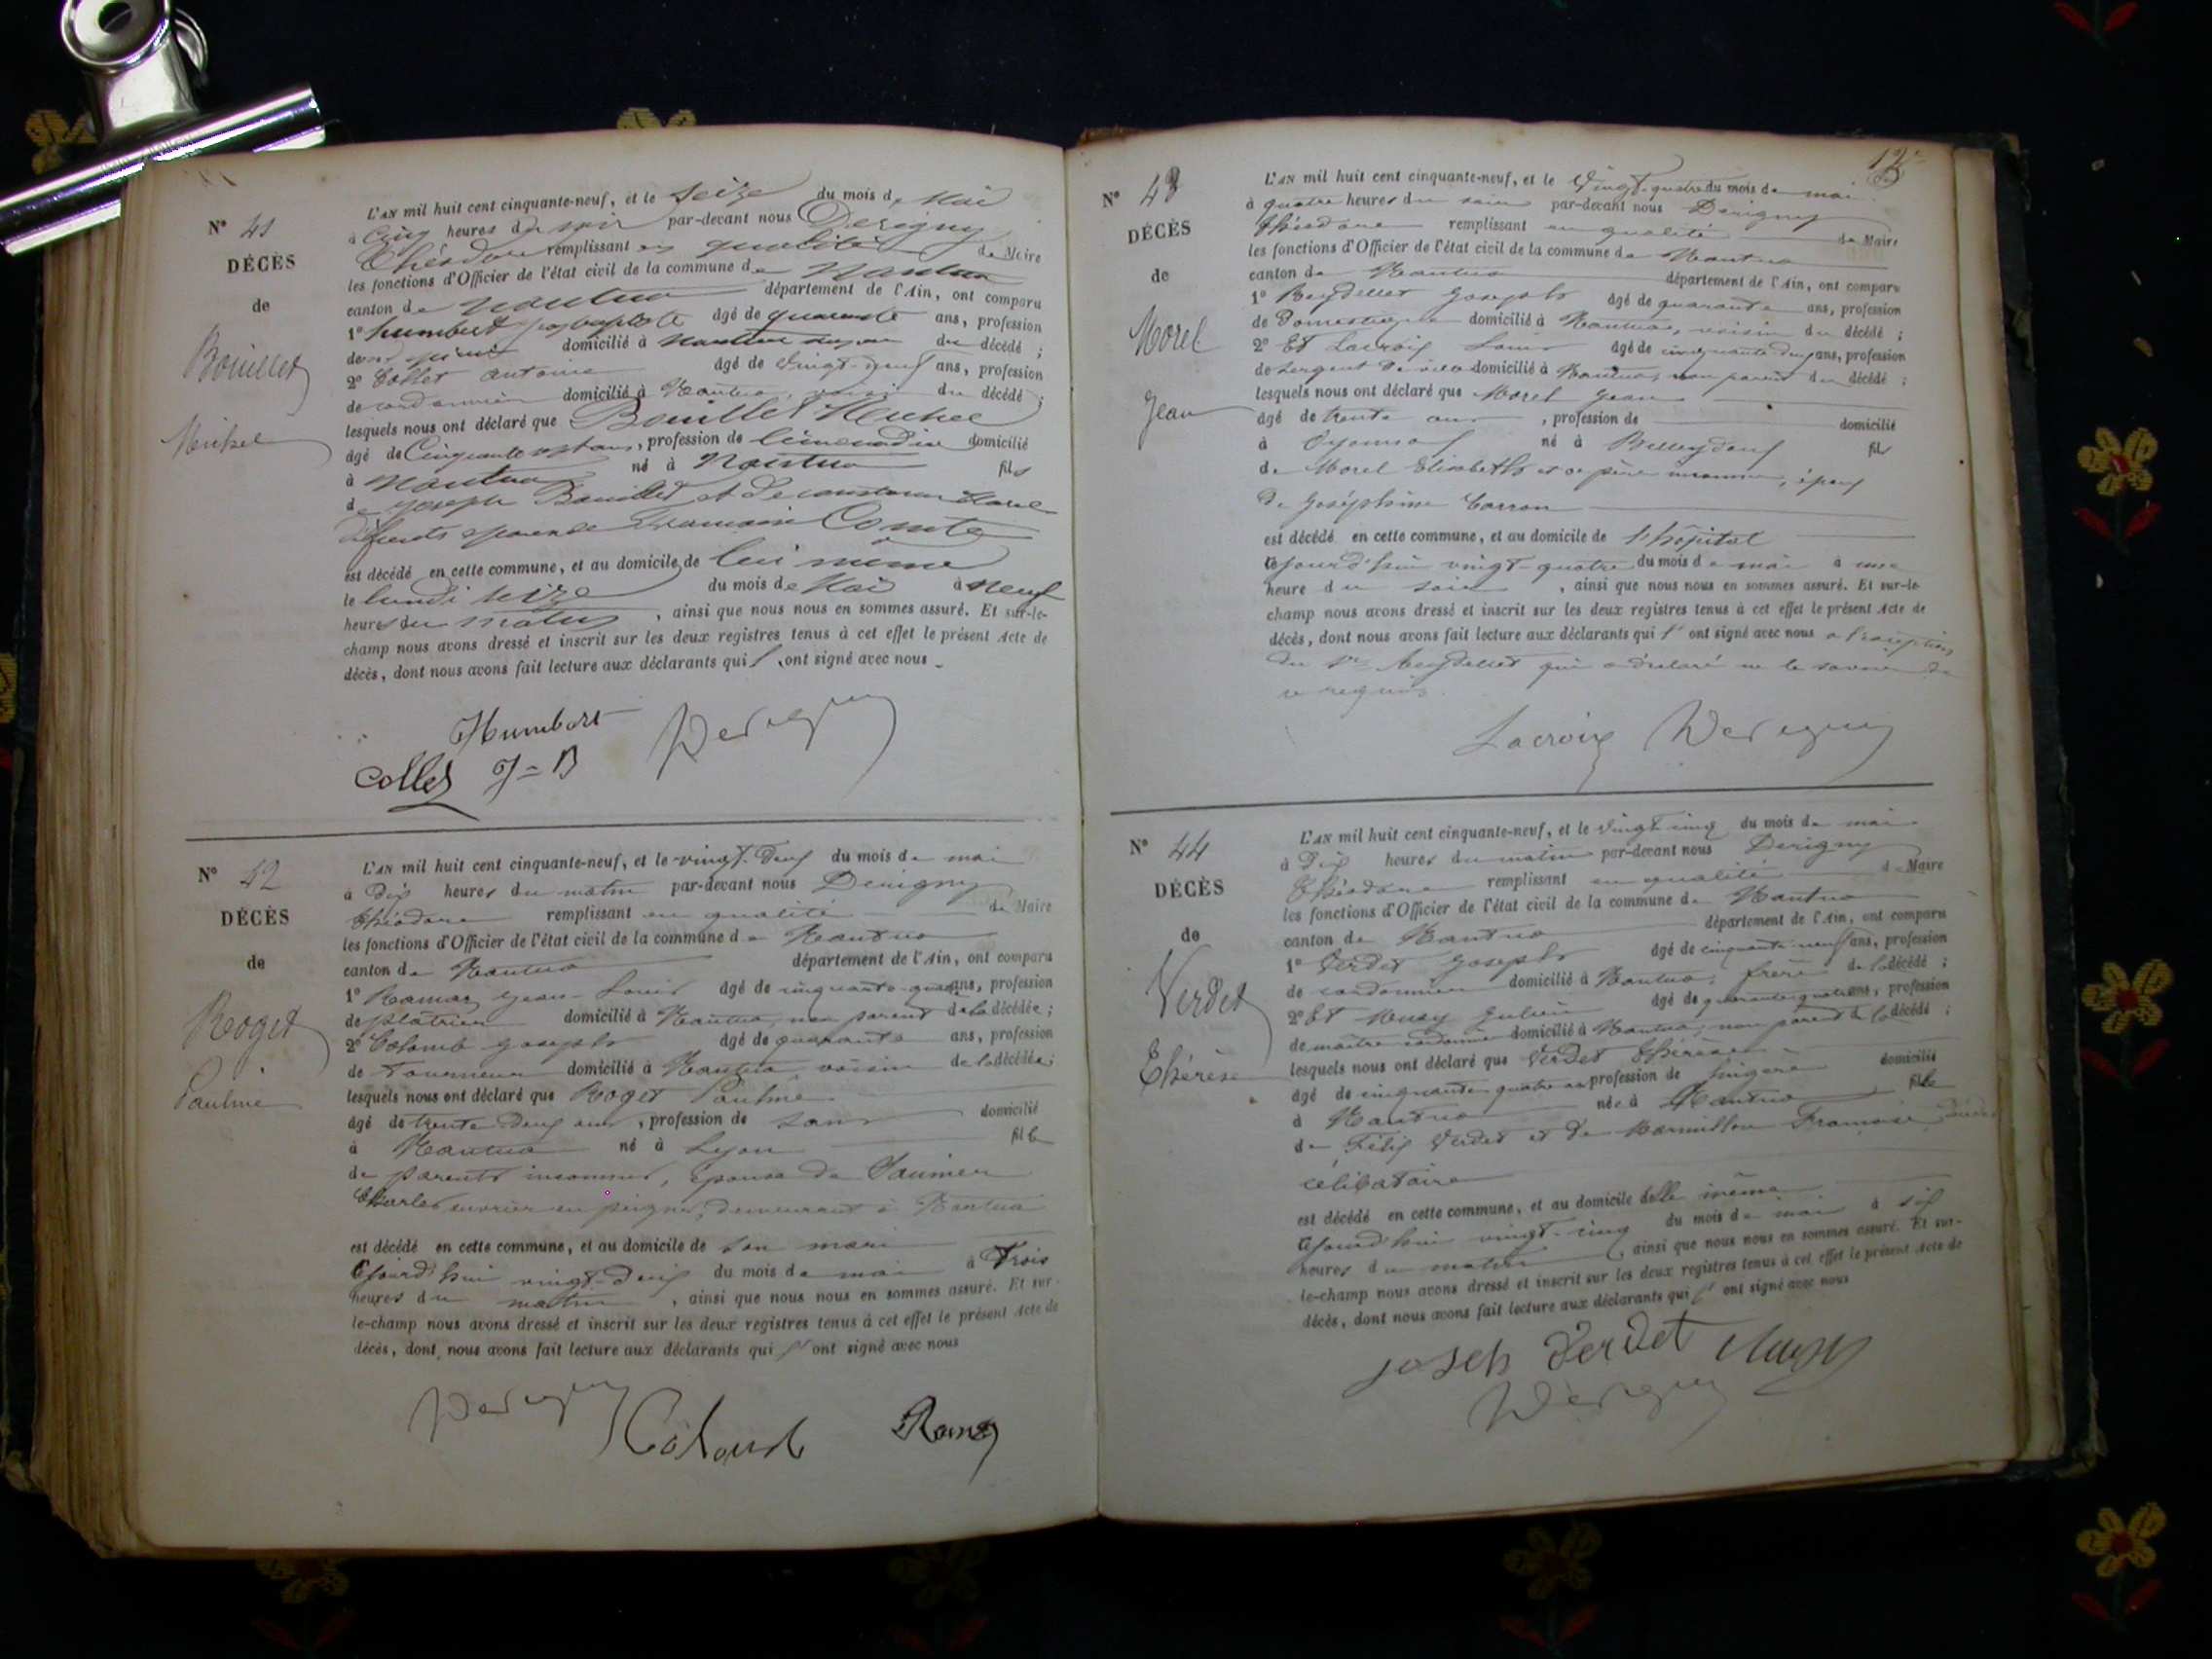 N° 41
DÉCÈS
de
Bouillet
Michel
L'AN mil huit cent cinquante-neuf, et le Seize du mois de Mai
à Cinq heures du soir par-devant nous Derigny
Théodore remplissant en qualité de Maire
les fonctions d'Officier de l'état civil de la commune de Nantua
canton de Nantua département de l'Ain, ont comparu
1° humbert âgé de quarante ans, profession
domicilié à Nantua du décédé ;
2° Collet antoine âgé de Vingt-neuf ans, profession
de cordonnier domicilié à Nantua, voisin du décédé ;
lesquels nous ont déclaré que Bouillet Michel
âgé de Cinquante ans, profession de domicilié
à Nantua né à Nantua fils
de joseph Bouillet et de
défunts Comte
est décédé en cette commune, et au domicile de lui même
le lundi seize du mois de Mai à neuf
heures du matin, ainsi que nous nous en sommes assuré. Et sur-le-
champ nous avons dressé et inscrit sur les deux registres tenus à cet effet le présent Acte de
décès, dont nous avons fait lecture aux déclarants qui l'ont signé avec nous
Humbert Derigny
Collet J=B
N° 42
DÉCÈS
de
Roget
Pauline
L'AN mil huit cent cinquante-neuf, et le vingt-deux du mois de mai
à dix heures du matin par-devant nous Derigny
Théodore remplissant en qualité de Maire
les fonctions d'Officier de l'état civil de la commune de Nantua
canton de Nantua département de l'Ain, ont comparu
1° Ramaz Jean-Louis âgé de cinquante ans, profession
de plâtrier domicilié à Nantua, non parent de la décédée ;
2° Colomb Joseph âgé de quarante ans, profession
de Tourneur domicilié à Nantua, voisin de la décédée ;
lesquels nous ont déclaré que Roget Pauline
âgé de trente-deux ans, profession de sans domicilié
à Nantua né à Lyon fille
de parents inconnus, épouse de Saunier
Charles ouvrier en peignes, demeurant à Nantua
est décédé en cette commune, et au domicile de son mari
Cejourd'hui vingt-deux du mois de mai à Trois
heures du matin, ainsi que nous nous en sommes assuré. Et sur-
le-champ nous avons dressé et inscrit sur les deux registres tenus à cet effet le présent Acte de
décès, dont nous avons fait lecture aux déclarants qui l'ont signé avec nous
Derigny Colomb Ramaz
N° 43
DÉCÈS
de
Morel
Jean
L'AN mil huit cent cinquante-neuf, et le Vingt-quatre du mois de mai
à quatre heures du soir par-devant nous Derigny
Théodore remplissant en qualité de Maire
les fonctions d'Officier de l'état civil de la commune de Nantua
canton de Nantua département de l'Ain, ont comparu
1° Beydellet Joseph âgé de quarante ans, profession
de Domestique domicilié à Nantua, voisin du décédé ;
2° Et Lacroix Louis âgé de cinquante deux ans, profession
de sergent de ville domicilié à Nantua, non parent du décédé ;
lesquels nous ont déclaré que Morel Jean
âgé de trente ans, profession de domicilié
à Oyonnax né à Belleydoux fils
de Morel Elisabeth et de père inconnu, époux
de Joséphine Carron
est décédé en cette commune, et au domicile de l'hôpital
Cejourd'hui vingt-quatre du mois de mai à une
heure du soir, ainsi que nous nous en sommes assuré. Et sur-le-
champ nous avons dressé et inscrit sur les deux registres tenus à cet effet le présent Acte de
décès, dont nous avons fait lecture aux déclarants qui l'ont signé avec nous à l'exception
du Sr Beydellet qui a déclaré ne le savoir de
ce requis
Lacroix Derigny
N° 44
DÉCÈS
de
Verdet
Thérèse
L'AN mil huit cent cinquante-neuf, et le vingt cinq du mois de mai
à Dix heures du matin par-devant nous Derigny
Théodore remplissant en qualité de Maire
les fonctions d'Officier de l'état civil de la commune de Nantua
canton de Nantua département de l'Ain, ont comparu
1° Verdet Joseph âgé de cinquante neuf ans, profession
de cordonnier domicilié à Nantua, frère de la décédé ;
2° Et Musy Julien âgé de quarante quatre ans, profession
de maître cordonnier domicilié à Nantua, non parent de la décédé ;
lesquels nous ont déclaré que Verdet Thérèse
âgé de cinquante quatre ans profession de lingère domicilié
à Nantua née à Nantua fille
de Félix Verdet et de Marmillon Françoise
célibataire
est décédé en cette commune, et au domicile d'elle même
Cejourd'hui vingt-cinq du mois de mai à six
heures du matin, ainsi que nous nous en sommes assuré. Et sur-
le-champ nous avons dressé et inscrit sur les deux registres tenus à cet effet le présent Acte de
décès, dont nous avons fait lecture aux déclarants qui l'ont signé avec nous
joseh Verdet Musy
Derigny